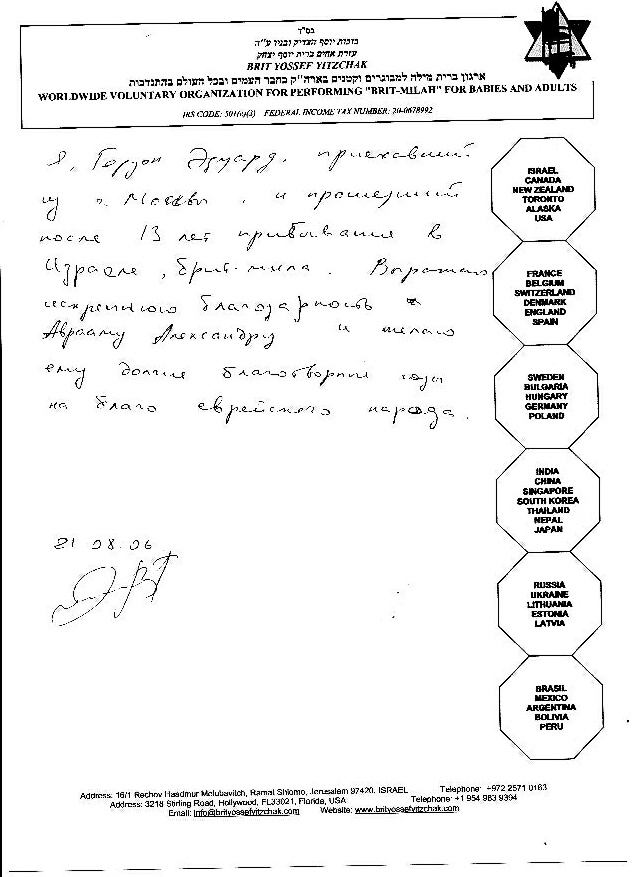 בס"ד
בזכות יוסף הצדיק ובניו ע"ה
עזרת אחים ברית יוסף יצחק
BRIT YOSSEF YITZCHAK
ארגון ברית מילה למבוגרים וקטנים בארה"ק בחבר העמים ובכל העולם בהתנדבות
WORLDWIDE VOLUNTARY ORGANIZATION FOR PERFORMING "BRIT-MILAH" FOR BABIES AND ADULTS
IRS CODE: 501(c)(3) FEDERAL INCOME TAX NUMBER: 20-0678992
Я, Гордон Эдуард, приехавший
из г. Москвы, и прошедший
после 13 лет прибывания в
Израиле, брит-мила. Выражаю
искреннюю благодарность
Аврааму Александру и желаю
ему долгие благотворные годы
на благо еврейского народа.
21 08.06
ISRAEL
CANADA
NEW ZEALAND
TORONTO
ALASKA
USA
FRANCE
BELGIUM
SWITZERLAND
DENMARK
ENGLAND
SPAIN
SWEDEN
BULGARIA
HUNGARY
GERMANY
POLAND
INDIA
CHINA
SINGAPORE
SOUTH KOREA
THAILAND
NEPAL
JAPAN
RUSSIA
UKRAINE
LITHUANIA
ESTONIA
LATVIA
BRASIL
MEXICO
ARGENTINA
BOLIVIA
PERU
Address: 16/1 Rechov Haadmur Melubavitch, Ramat Shlomo, Jerusalem 97420. ISRAEL Telephone: +972 2571 0163
Address: 3218 Stirling Road, Hollywood, FL33021, Florida, USA Telephone: +1 954 983 9394
Email: info@brityossefyitzchak.com Website: www.brityossefyitzchak.com